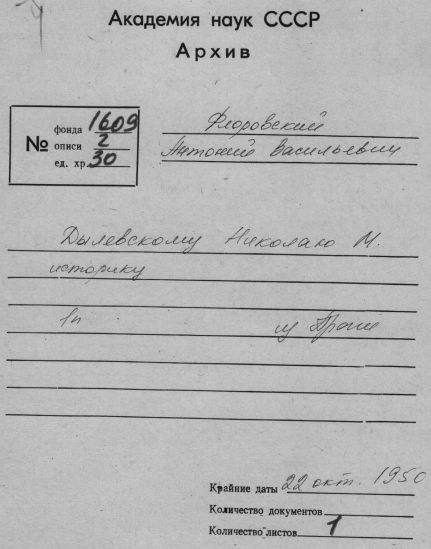 Академия наук СССР
Архив
№
фонда 1609
описи 2
ед. хр. 30
Флоровский
Антоний Васильевич
Дылевскому Николаю М.
историку
1п из Праги
Крайние даты 22 окт. 1950
Количество документов
Количество листов 1